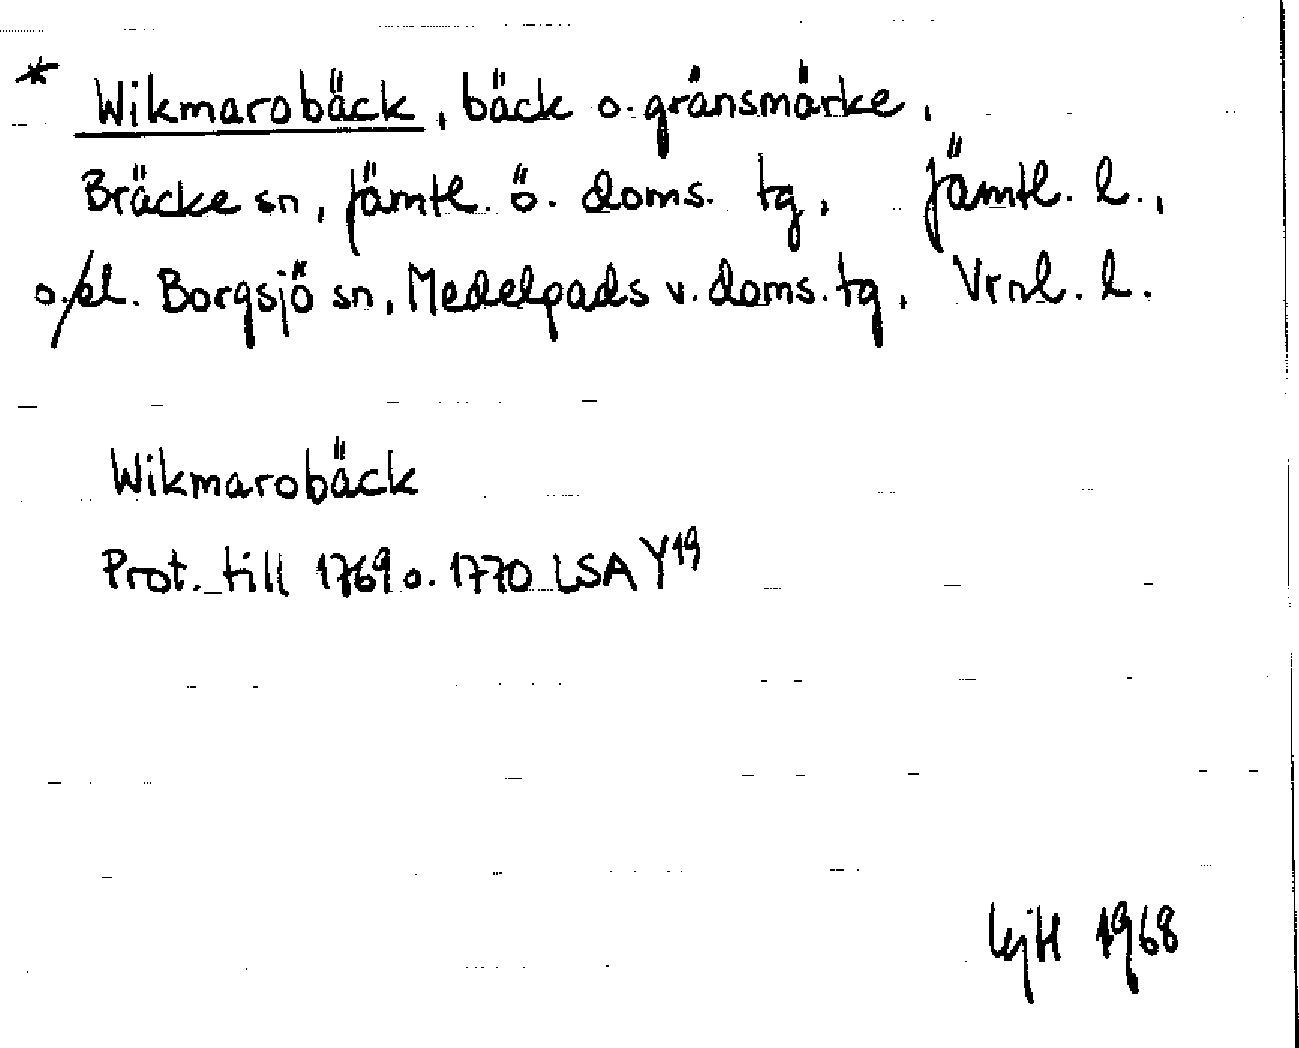 * Wikmarobäck, bäck o. gränsmärke,
Bräcke sn, Jämtl. ö. doms. tg, Jämtl. l.,
o./el. Borgsjö sn, Medelpads v. doms. tg, Vrnl. l.
Wikmarobäck
Prot. till 1769 o. 1770 LSA Y19
1968